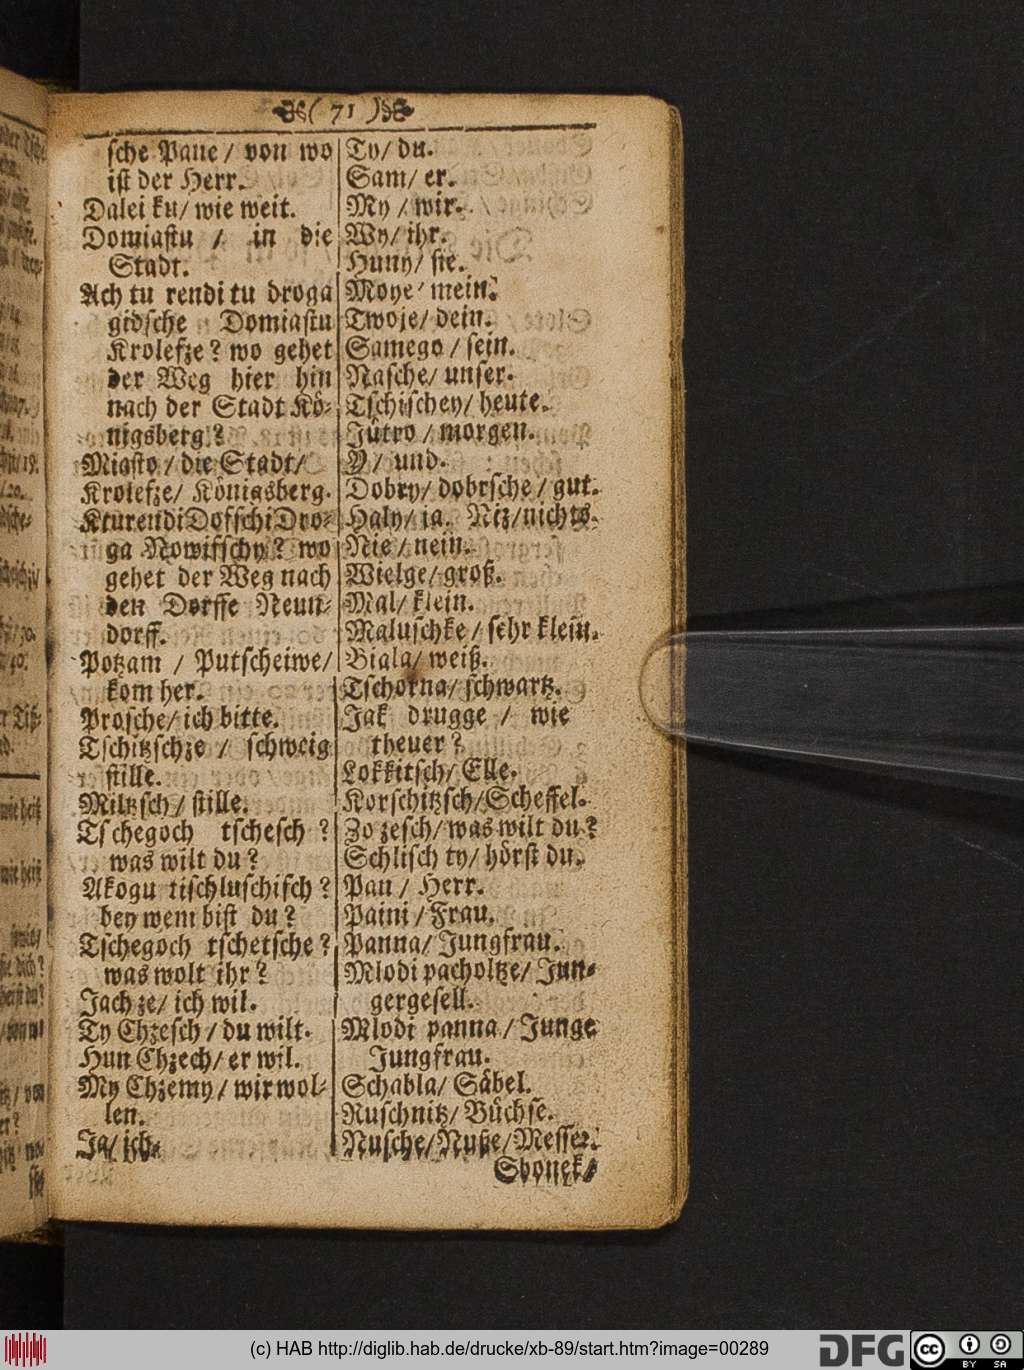 ( 71 )
sche Pane / von wo
ist der Herr.
Dalei ku/ wie weit.
Domiastu / in die
Stadt.
Ach tu rendi tu droga
gidsche Domiastu
Krolefze? wo gehet
der Weg hier hin
nach der Stadt Kö-
nigsberg?
Miasto / die Stadt/
Krolefze/ Königsberg.
Kturendi Dofschi Dro-
ga Nowifschy? wo
gehet der Weg nach
den Dorffe Neun-
dorff.
Potzam / Putscheiwe/
kom her.
Prosche/ ich bitte.
Tschitzschze / schweig
stille.
Miltzsch/ stille.
Tschegoch tschesch?
was wilt du?
Akogu tischluschisch?
bey wem bist du?
Tschegoch tschetsche?
was wolt ihr?
Jach ze/ ich wil.
Ty Chzesch/ du wilt.
Hun Chzech/ er wil.
My Chzemy/ wir wol-
len.
Ja/ ich.
Ty/ du.
Sam/ er.
My / wir.
Wy/ ihr.
Huny/ sie.
Moye/ mein.
Twoje/ dein.
Samego / sein.
Nasche/ unser.
Tschischey/ heute.
Jütro / morgen.
Y/ und.
Dobry/ dobrsche / gut.
Haly/ ja. Niz/nichts.
Nie / nein.
Wielge/ groß.
Mal/ klein.
Maluschke/ sehr klein.
Biala/ weiß.
Tschorna/ schwartz.
Jak drugge / wie
theuer?
Lokkitsch/ Elle.
Korschitzsch/Scheffel.
Zo zesch/ was wilt du?
Schlisch ty/ hörst du.
Pan / Herr.
Paini / Frau.
Panna/ Jungfrau.
Mlodi pacholtze/ Jun-
gergesell.
Mlodi panna / Junge
Jungfrau.
Schabla/ Säbel.
Ruschnitz/ Büchse.
Nusche/Nuße/Messer.
Sbonek/
(c) HAB http://diglib.hab.de/drucke/xb-89/start.htm?image=00289
DFG
cc
BY SA